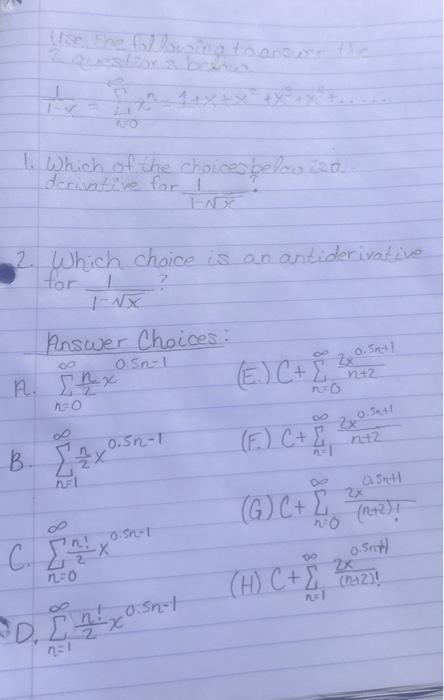 Use the following to answer the
2 questions below.
1/(1-x) = ∞Σn=0 x^n = 1+x+x^2+x^3+x^4+......
1. Which of the choices below is a
derivative for 1/(1-√x)?
2. Which choice is an antiderivative
for 1/(1-√x)?
Answer Choices:
A. ∞Σn=0 n/2 x^0.5n-1
(E.) C+ ∞Σn=0 2x^0.5n+1/(n+2)
B. ∞Σn=1 n/2 x^0.5n-1
(F.) C+ ∞Σn=1 2x^0.5n+1/(n+2)
(G) C+ ∞Σn=0 2x^0.5n+1/(n+2)!
C. ∞Σn=0 n!/2 x^0.5n-1
(H) C+ ∞Σn=1 2x^0.5n+1/(n+2)!
D. ∞Σn=1 n!/2 x^0.5n-1